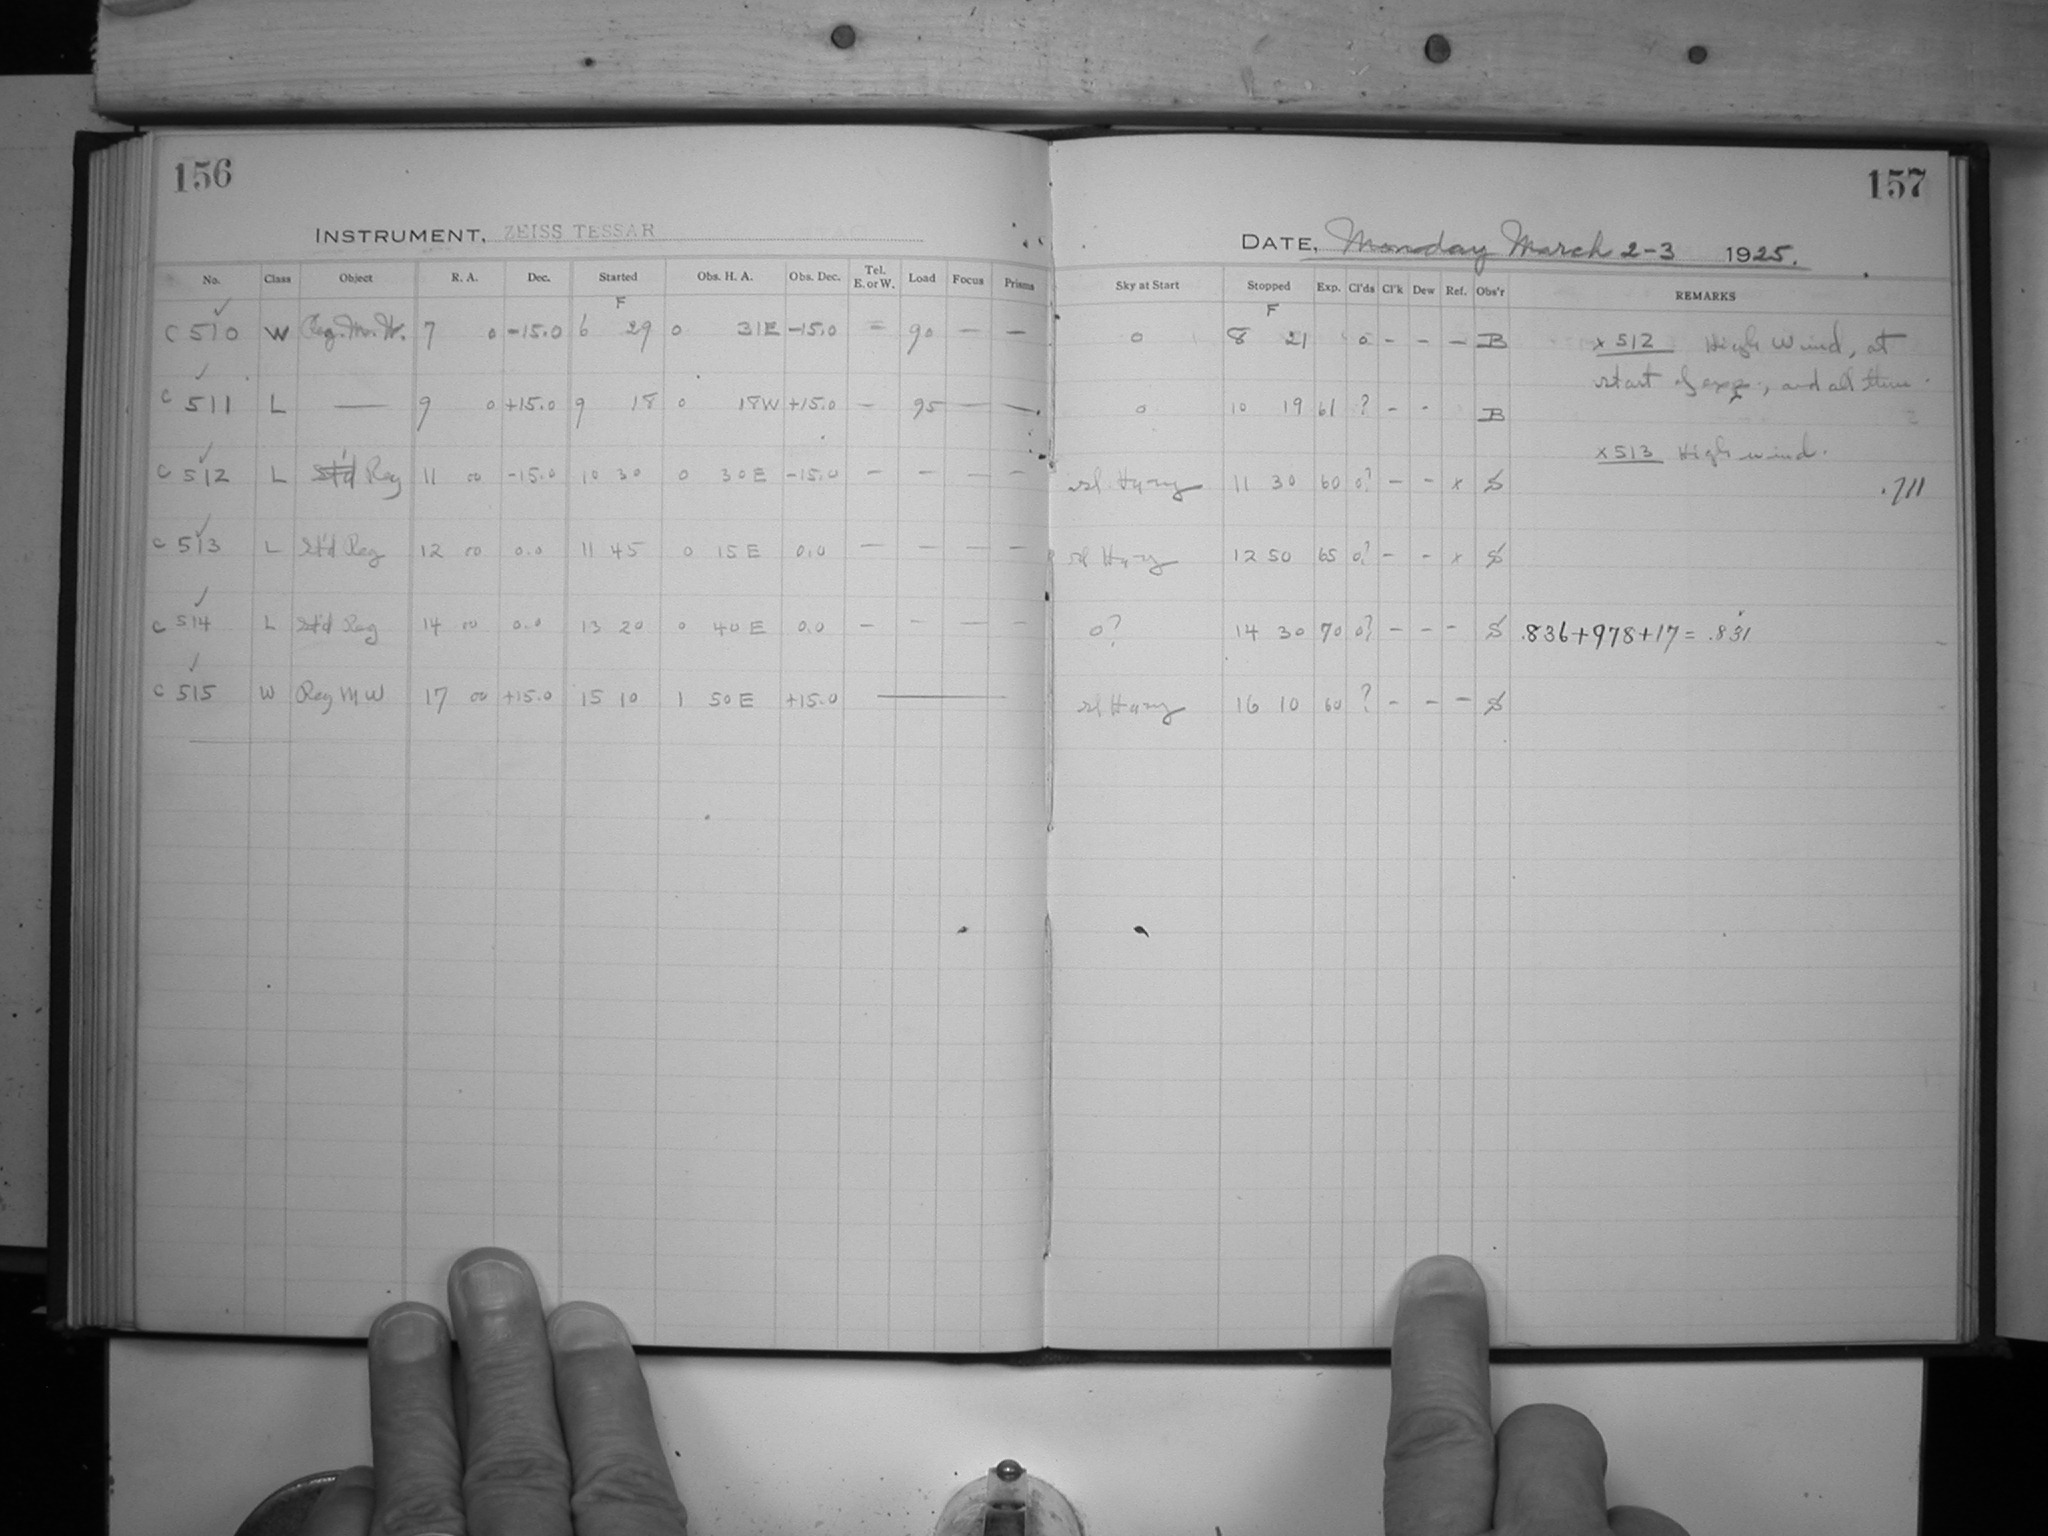 156
157
INSTRUMENT, ZEISS TESSAR
DATE, Monday March 2-3 1925.
No. Class Object R. A. Dec. Started Obs. H. A. Obs. Dec. Tel. E. or W. Load Focus Prisms Sky at Start Stopped Exp. Cl'ds Cl'k Dew Ref. Obs'r REMARKS
F F
C 510 W Reg. M. W. 7 0 -15.0 6 29 0 31E -15.0 = 90 — — 0 8 21 0 - - - B x 512 High Wind, at
start of exp., and all thru.
C 511 L — 9 0 +15.0 9 18 0 18W +15.0 - 95 — — 0 10 19 61 ? - - B
x 513 High wind.
C 512 L St'd Reg 11 00 -15.0 10 30 0 30E -15.0 - - - - sl. Hazy 11 30 60 0? - - x S .711
C 513 L St'd Reg 12 00 0.0 11 45 0 15E 0.0 - - - - sl Hazy 12 50 65 0? - - x S
C 514 L St'd Reg 14 00 0.0 13 20 0 40E 0.0 - - - - 0? 14 30 70 0? - - - S .836+978+17 = .831
C 515 W Reg M W 17 00 +15.0 15 10 1 50E +15.0 — sl Hazy 16 10 60 ? - - - S